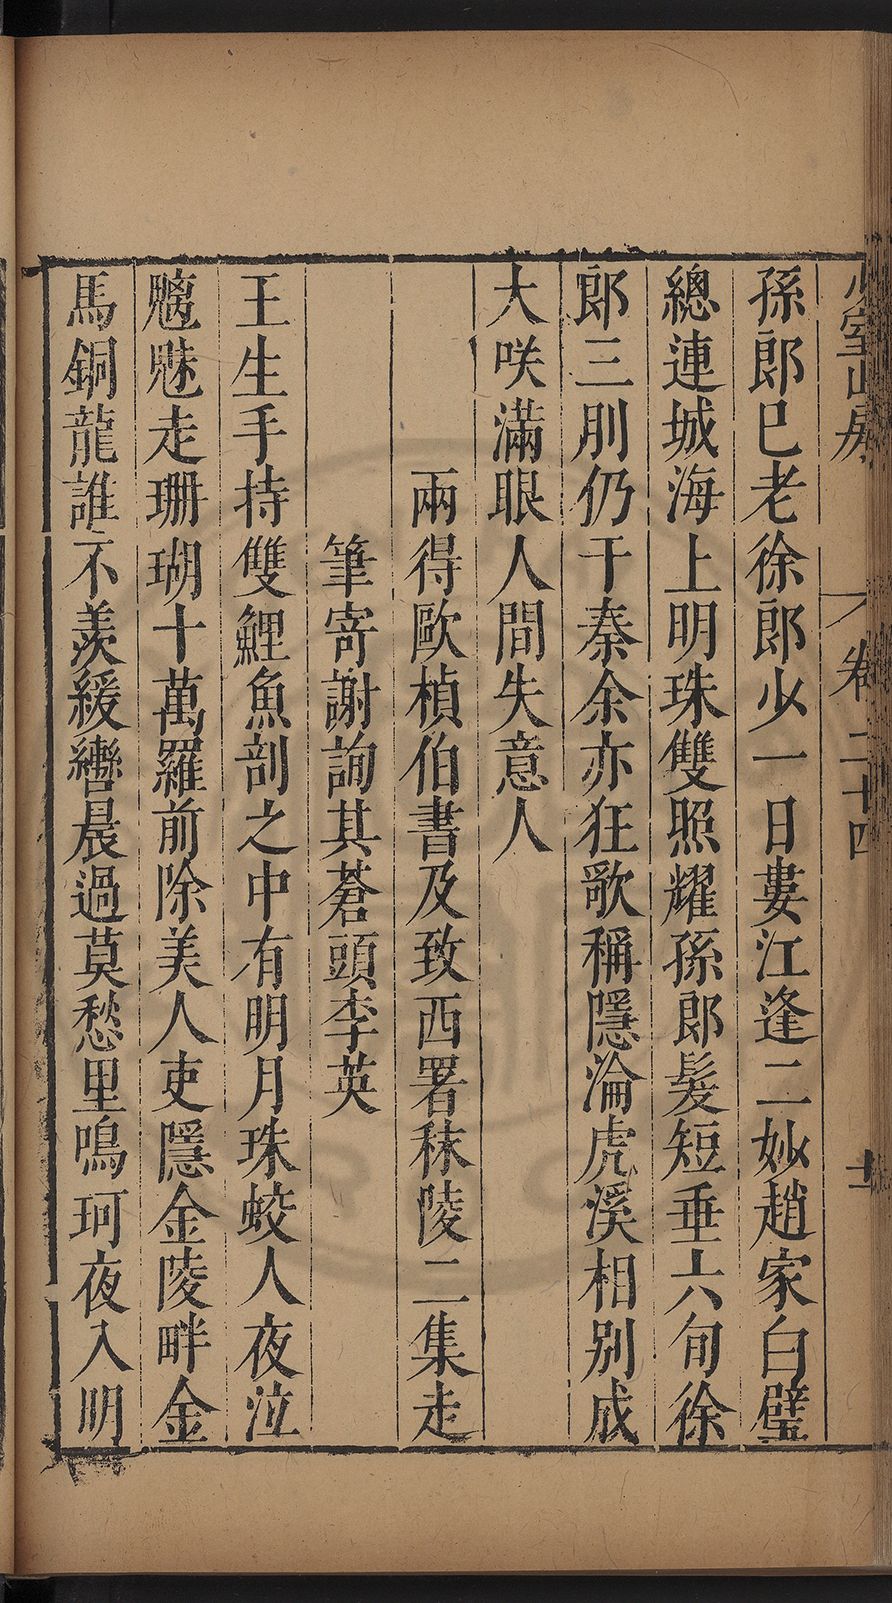 少室山房 卷二十四 十一
孫郎已老徐郎少一日婁江逢二妙趙家白璧
總連城海上明珠雙照耀孫郎髮短垂六旬徐
郎三刖仍干秦余亦狂歌稱隱淪虎溪相别成
大咲滿眼人間失意人
兩得歐楨伯書及致西署秣陵二集走
筆寄謝詢其蒼頭李英
王生手持雙鯉魚剖之中有明月珠蛟人夜泣
魑魅走珊瑚十萬羅前除美人吏隱金陵畔金
馬銅龍誰不羨緩轡晨過莫愁里鳴珂夜入明